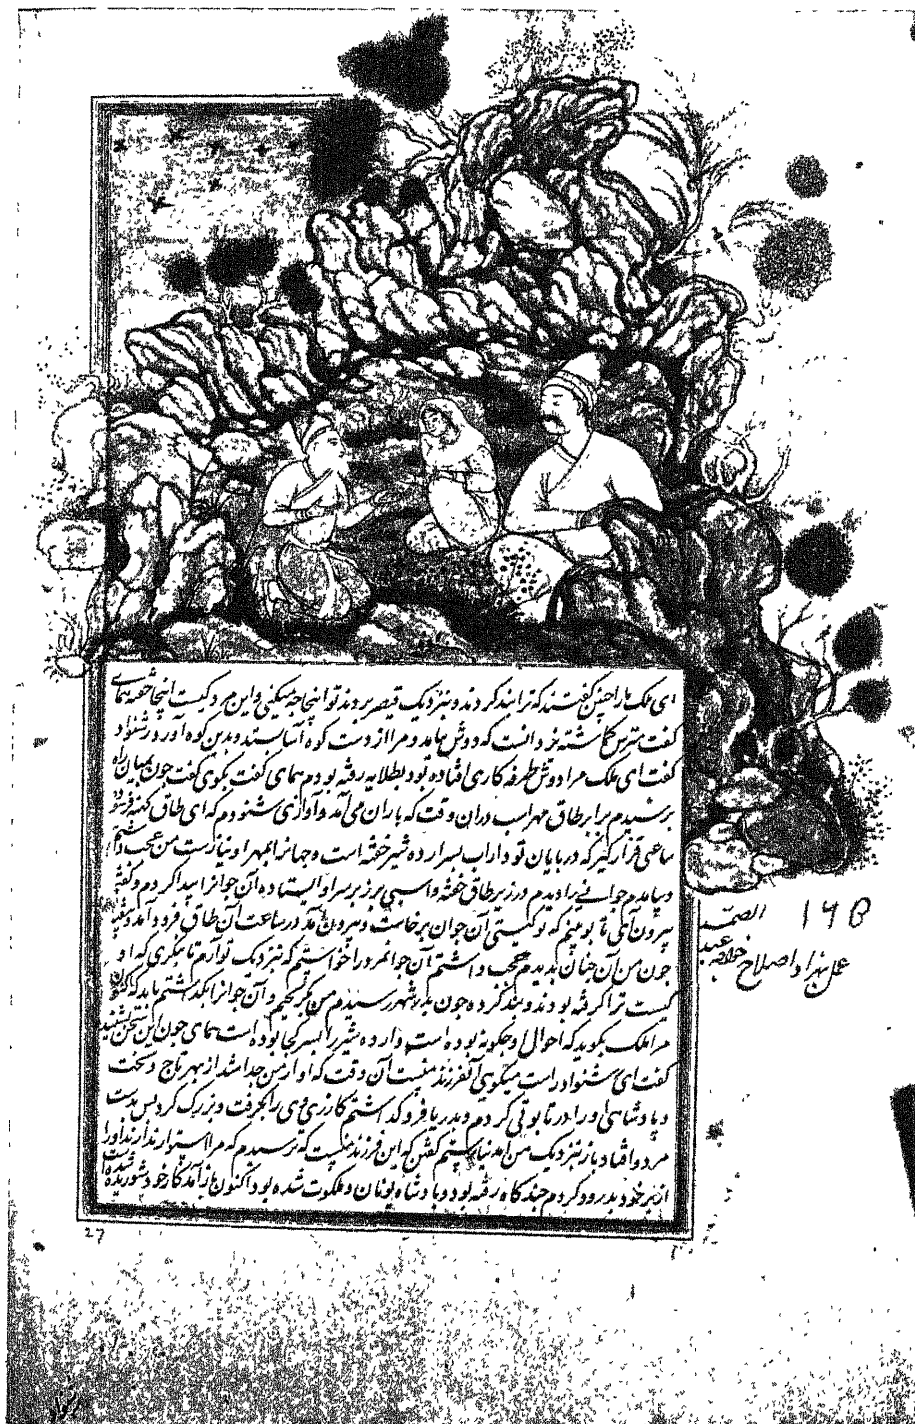 ای ملک ما را چنین گفتند که ترا بند کردند و بنزدیک قیصر بردند تو اینجا چه میکنی و این مرد کیست اینجا خفته همای
گفت مترس گماشته یزدانست که دوش بیامد و مرا از دست کوه آسا بستد و بدین کوه آورد رشنواد
گفت ای ملک مرا دوش طرفه کاری افتاده بود بطلایه رفته بودم همای گفت بگوی گفت چون بمیان راه
برسیدم برابر طاق مهراب دران وقت که باران می آمد و آوازی شنودم که ای طاق کهنه
ساعتی قرار گیر که در پایان تو داراب بسر ارده شیر خفته است و جهانرا بمهر او نیازست من عجب داشتم
و بیامدم جوانی را دیدم در زیر طاق خفته و اسبی برز بر سر او ایستاده آن جوانرا بیدار کردم و گفتم
بیرون آی تا بوبینم که تو کیستی آن جوان برخاست و بیرون آمد در ساعت آن طاق فرود آمد
چون من آن چنان بدیدم عجب داشتم آن جوانمرد را خواستم که بنزدیک تو آرم تا بنگری که او
کیست ترا گرفته بودند و بند کرده چون بدر شهر رسیدم من بگریختم و آن جوانرا بگذاشتم باید که اکنون
مرا ملک بگوید که احوال او چگونه بوده است و ارده شیر را بسر کجا بوده است همای چون این سخن بشنید
گفت ای رشنواد راست میگویی آن فرزند منست آن وقت که او از من جدا شد از بهر تاج و تخت
و پادشاهی او را در تابوتی کردم و بدریا فرو گذاشتم گازری وی را بگرفت و بزرگ کرد پس بدست
مردو افتاد باز بنزدیک من آمد نیارستم گفتن که این فرزند منست که ترسیدم که مرا استوار ندارند او را
از بر خود بدرود کردم چند گاه رفته بود و پادشاه یونان و ملکوت شده بود اکنون باز آمد کار خود شوریده
16B
عمل بهزاد و اصلاح خواجه عبد الصمد
27